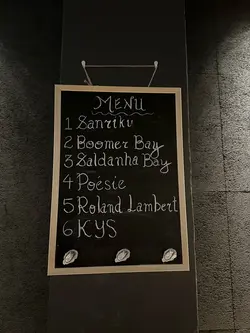 MENU
1 Sanriku
2 Boomer Bay
3 Saldanha Bay
4 Poésie
5 Roland Lambert
6 KYS